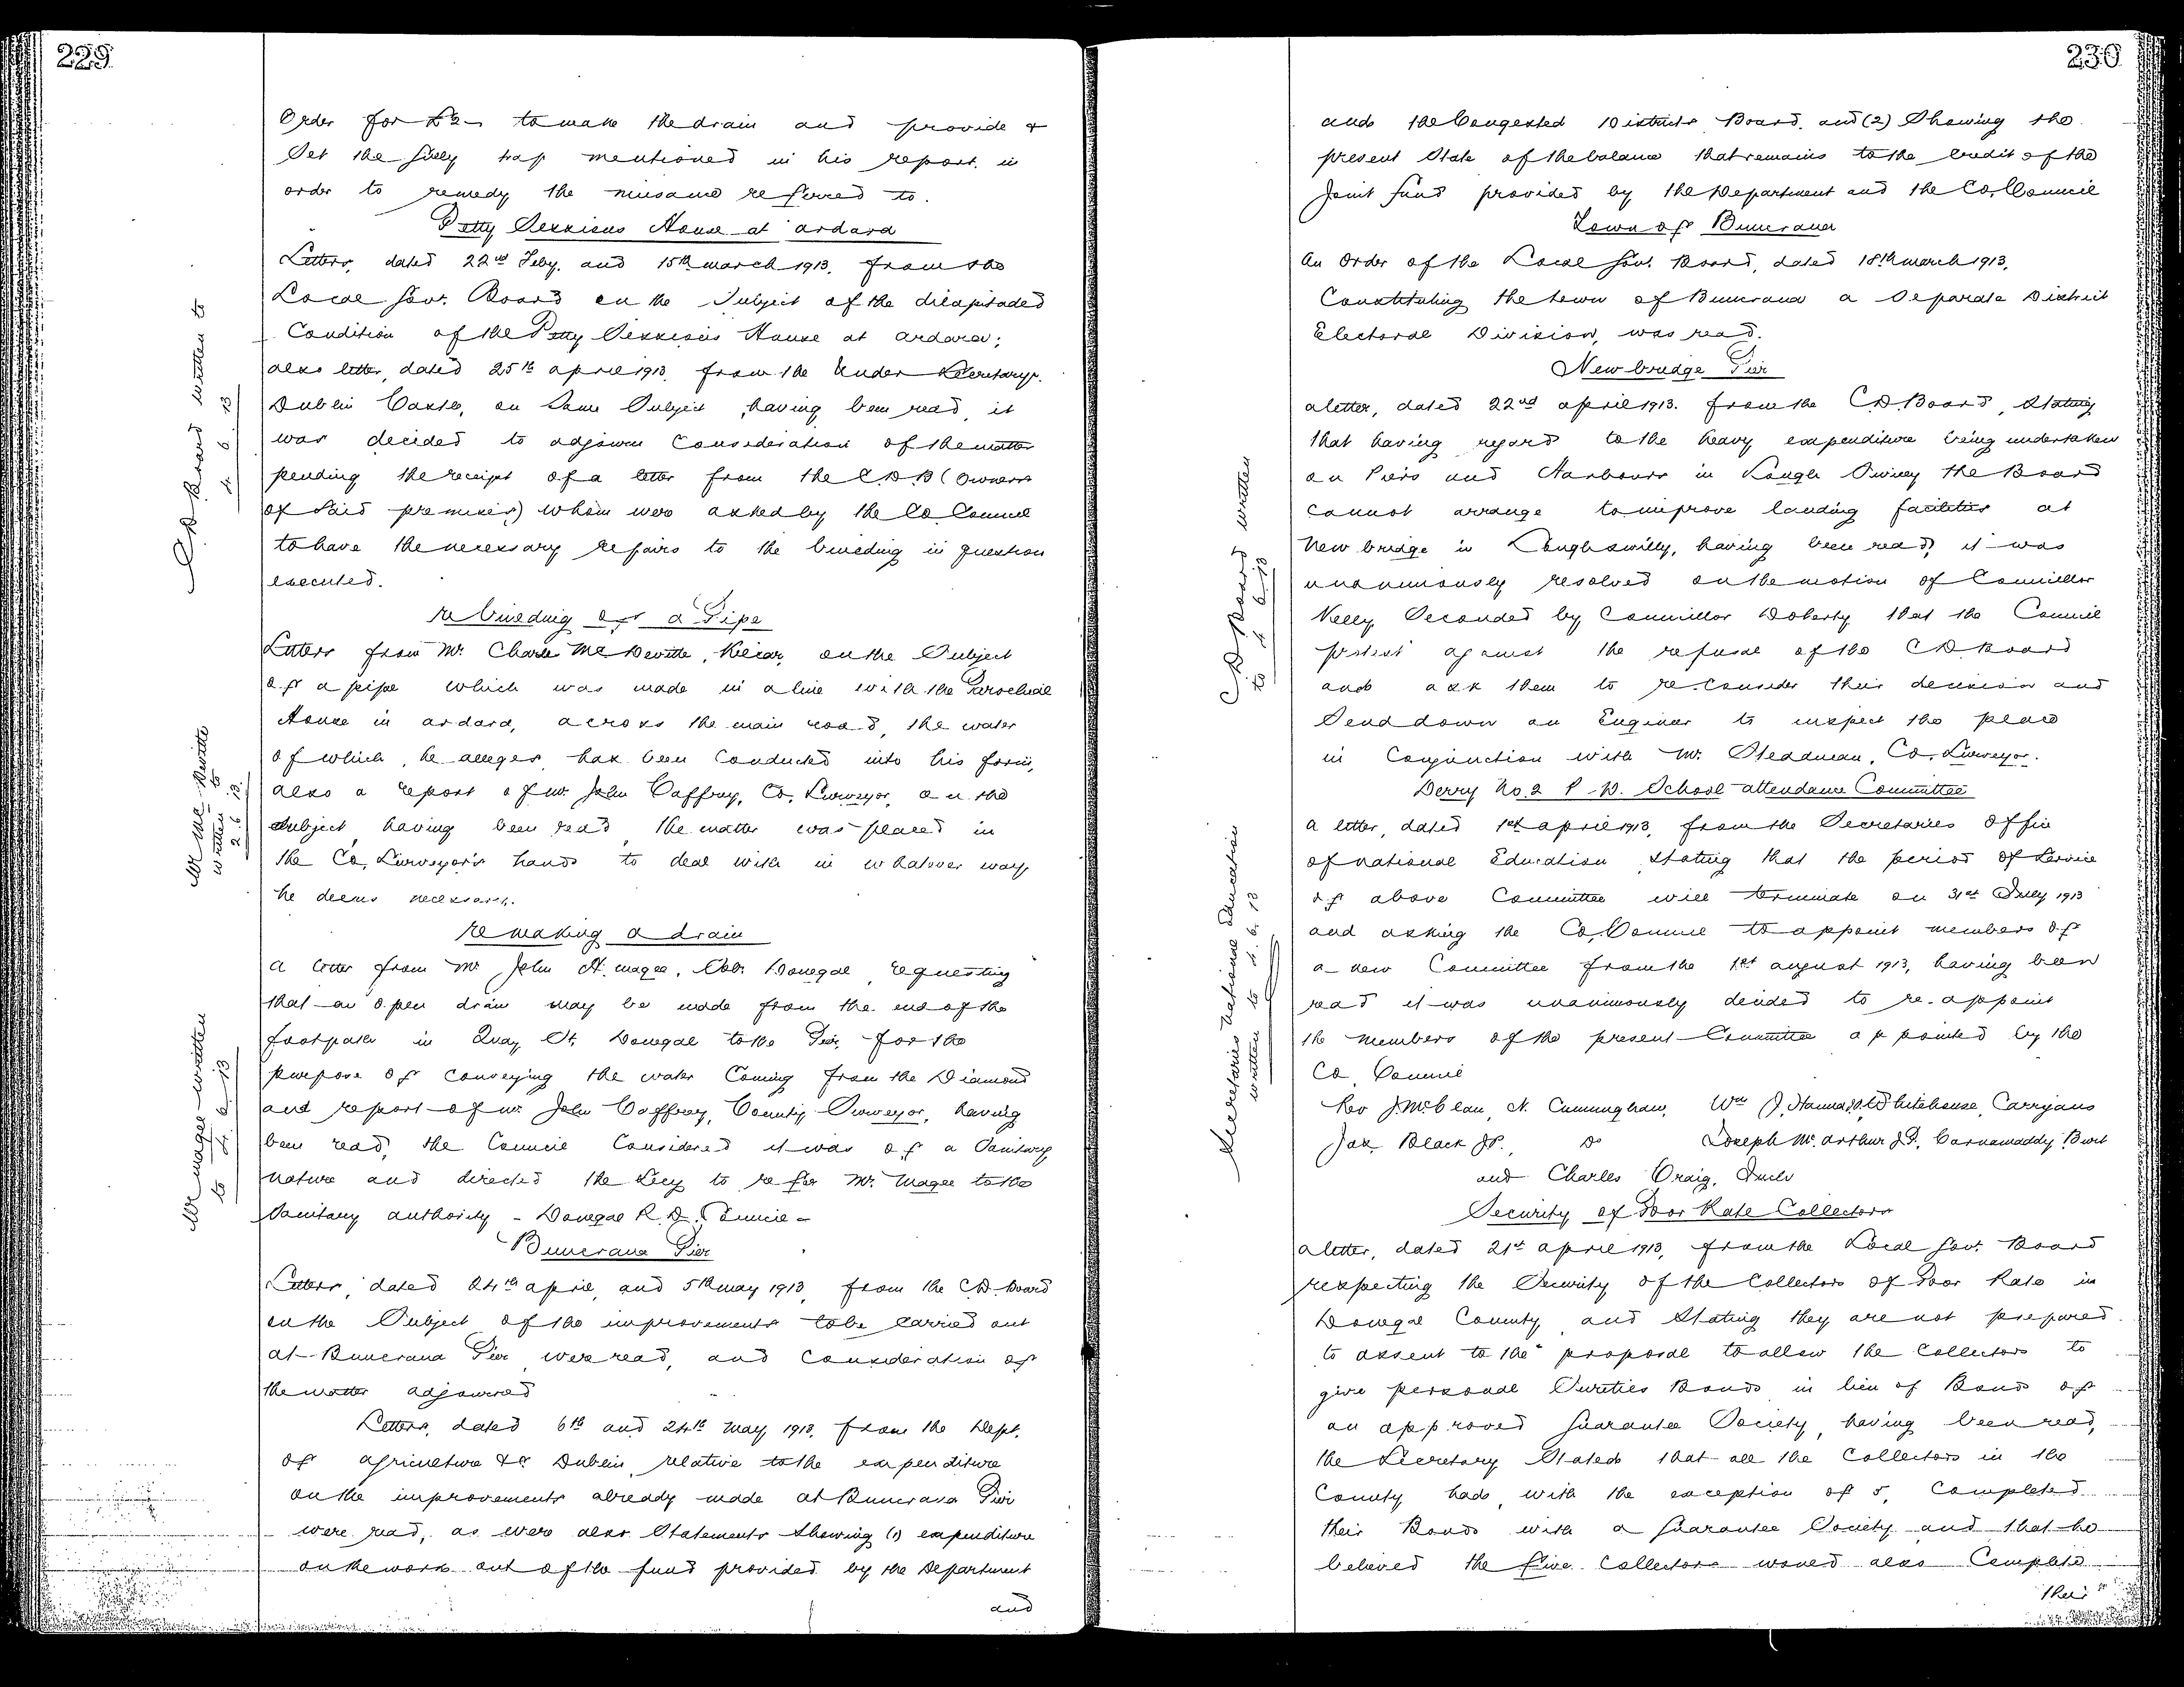 229
Order for £2 - to make the drain and provide &
Set the Gully trap mentioned in his report in
order to remedy the nuisance referred to.
Petty Sessions House at Ardara
Letters, dated 22nd Feby. and 15th March 1913, from the
Local Govt. Board on the Subject of the dilapitaded
Condition of the Petty Sessions House at Ardara;
also letter, dated 25th April 1913, from the Under Secretary,
Dublin Castle, on Same Subject, having been read, it
was decided to adjourn Consideration of the matter
pending the receipt of a letter from the C.D.B (Owners
of Said premises) whom were asked by the Co Council
to have the necessary repairs to the building in question
executed.
C D Board written to
4. 6. 13
re building of a Pipe
Letters from Mr. Charles Mc Devitte, Kilcar, on the Subject
of a pipe which was made in a line with the Parochial
House in Ardara, across the main road, the water
of which, he alleges, has been Conducted into his farm,
also a report of Mr. John Caffrey, Co. Surveyor, on the
Subject having been read, the matter was placed in
the Co. Surveyor's hands to deal with in whatever way
he deems necessary.
Mr Mc Devitte
written to
2. 6. 13.
re making a drain
A letter from Mr John H. Magee, Donegal, requesting
that an open drain may be made from the end of the
footpath in Quay St. Donegal to the Pier, for the
purpose of Conveying the water Coming from the Diamond
and report of Mr. John Caffrey, County Surveyor, having
been read, the Council Considered it was of a Sanitary
nature and directed the Secy to refer Mr. Magee to the
Sanitary authority - Donegal R. D. Council -
Mr Magee written
to 4. 6. 13
Buncrana Pier
Letters, dated 24th April, and 5th May 1913, from the C.D. Board
on the Subject of the improvements to be Carried out
at Buncrana Pier were read, and Consideration of
the matter adjourned
Letters, dated 6th and 24th May 1913, from the Dept.
of Agriculture &c Dublin, relative to the expenditure
on the improvements already made at Buncrana Pier
were read, as were also Statements Showing (1) expenditure
on the work out of the fund provided by the Department
and
230
and the Congested Districts Board, and (2) Showing the
present State of the balance that remains to the Credit of the
Joint fund provided by the Department and the Co. Council
Town of Buncrana
An Order of the Local Govt. Board, dated 18th March 1913,
Constituting the town of Buncrana a Separate District
Electoral Division, was read.
Newbridge Pier
A letter, dated 22nd April 1913. from the C.D. Board, Stating
that having regard to the heavy expenditure being undertaken
on Piers and Harbours in Lough Swilly the Board
Cannot arrange to improve landing facilities at
New bridge in Loughswilly, having been read, it was
unanimously resolved on the motion of Councillor
Kelly Seconded by Councillor Doherty that the Council
protest against the refusal of the C D Board
and ask them to re-Consider their decision and
Send down an Engineer to inspect the place
in Conjunction with Mr. Steadman, Co. Surveyor.
C D Board written
to 4. 6. 13
Derry No. 2 R. D. School attendance Committee
A letter, dated 1st April 1913, from the Secretaries Office
of National Education Stating that the period of Service
of above Committee will terminate on 31st July 1913
and asking the Co. Council to appoint members of
a new Committee from the 1st August 1913, having been
read it was unanimously decided to re-appoint
the members of the present Committee appointed by the
Co. Council
Rev J. McClean, N. Cunningham, Wm J. Hanna, Whitehouse, Carrigans
Jas. Black J.P., Do Joseph Mc Arthur J.P., Carnamaddy, Burt
and Charles Craig, Inch
Secretaries National Education
written to 4. 6. 13
Security of Poor Rate Collectors
A letter, dated 21st April 1913, from the Local Govt. Board
respecting the Security of the Collectors of Poor Rate in
Donegal County and Stating they are not prepared
to assent to the proposal to allow the Collectors to
give personal Sureties Bonds in lieu of Bonds of
an approved Guarantee Society, having been read,
the Secretary Stated that all the Collectors in the
County had, with the exception of 5, Completed
their Bonds with a Guarantee Society and that he
believed the five Collectors would also Complete
their